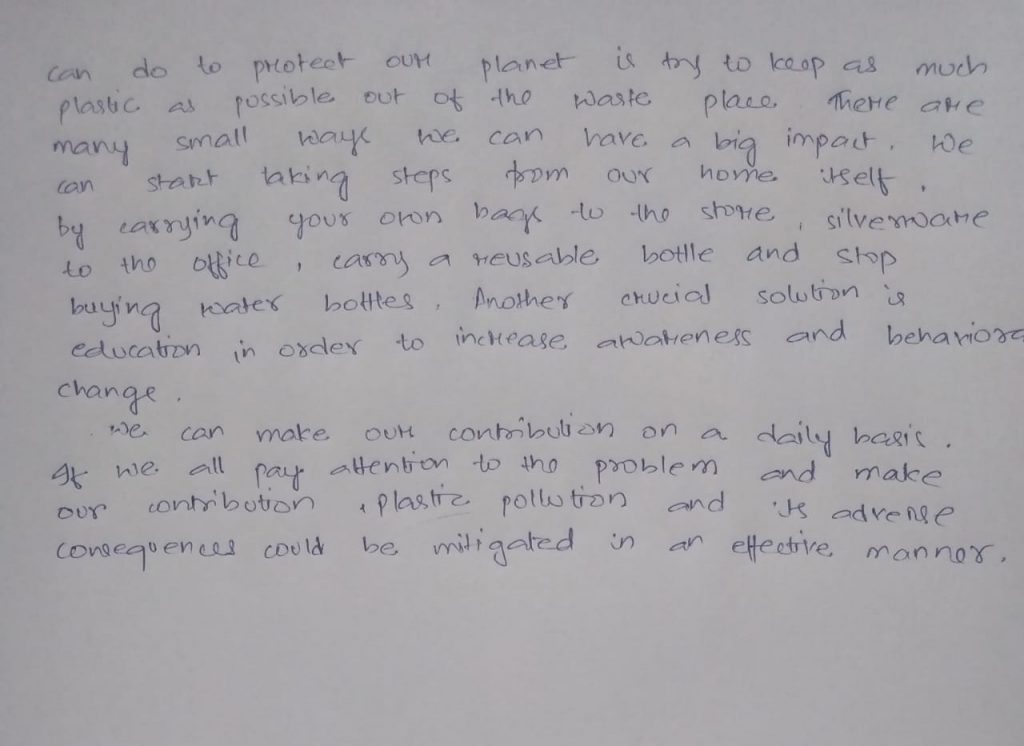 can do to protect our planet is try to keep as much
plastic as possible out of the waste place. There are
many small ways we can have a big impact. We
can start taking steps from our home itself.
by carrying your own bags to the store, silverware
to the office, carry a reusable bottle and stop
buying water bottles. Another crucial solution is
education in order to increase awareness and behaviora
change.
We can make our contribution on a daily basis.
If we all pay attention to the problem and make
our contribution, plastic pollution and its adverse
consequences could be mitigated in an effective manner.